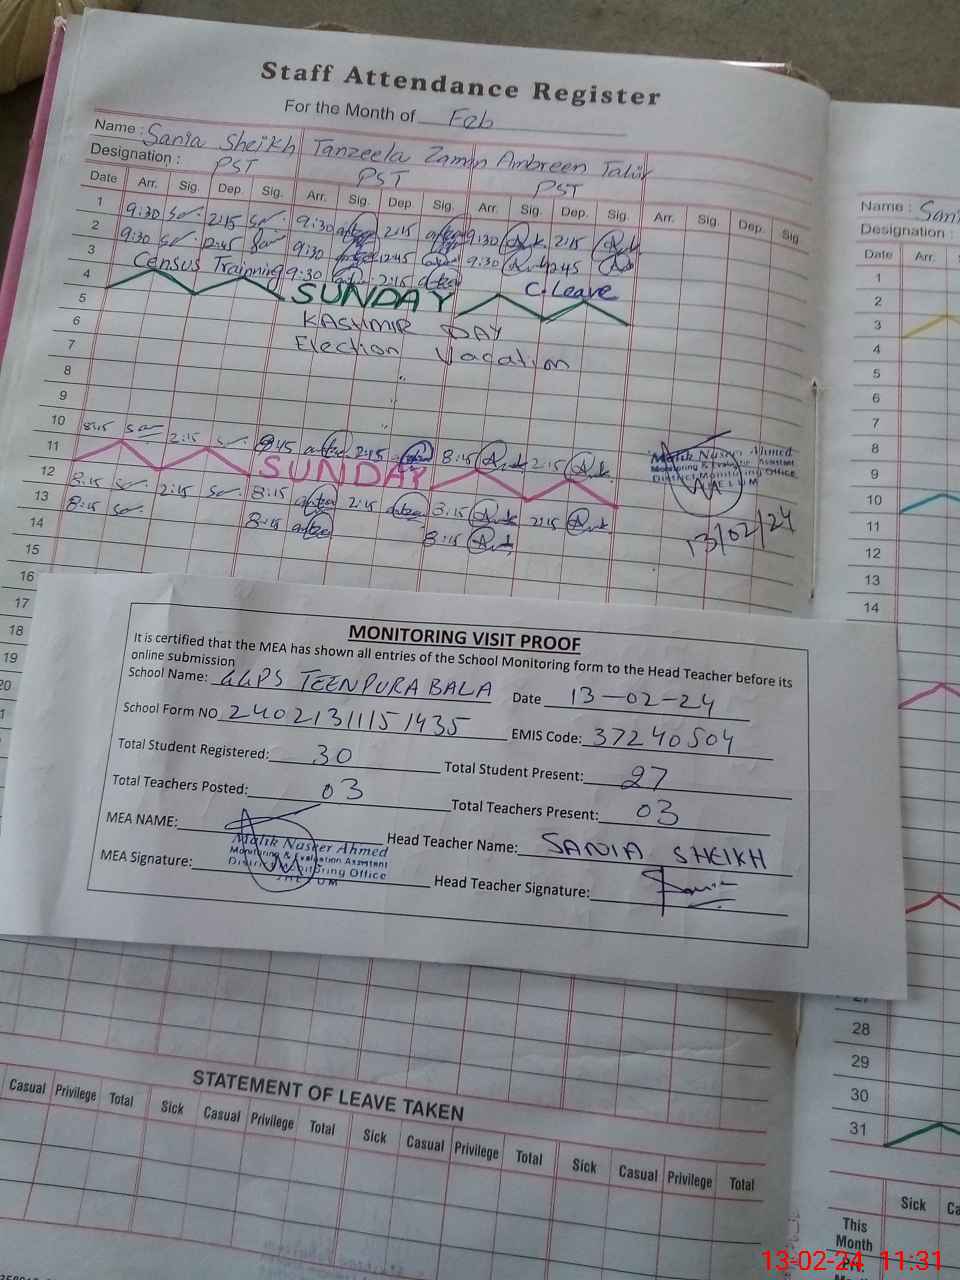 Staff Attendance Register
For the Month of Feb
Name : Sania Sheikh Tanzeela Zaman Ambreen Tahir
Designation : PST PST PST
Date Arr. Sig. Dep. Sig. Arr. Sig. Dep Sig. Arr. Sig. Dep. Sig. Arr. Sig. Dep. Sig
1 9:30 2:15 9:30 2:15 9:30 2:15
2 9:30 12:45 9:30 12:45 9:30 12:45
3 Census Training 9:30 2:15 C.Leave
4 SUNDAY
5 KASHMIR DAY
6 Election Vacation
7 "
8 "
9 "
10 8:45 2:15 8:45 2:45 8:45 2:15
11 SUNDAY
12 8:15 2:15 8:15 2:15 8:15 2:15
13 8:15 8:15 8:15
14
15
16
17
18
19
20
Malik Naseer Ahmed
Monitoring & Evaluation Assistant
District Monitoring Office
JHELUM
13/02/24
MONITORING VISIT PROOF
It is certified that the MEA has shown all entries of the School Monitoring form to the Head Teacher before its
online submission
School Name: GGPS TEENPURA BALA Date 13-02-24
School Form NO 24021311151435 EMIS Code: 37240504
Total Student Registered: 30 Total Student Present: 27
Total Teachers Posted: 03 Total Teachers Present: 03
MEA NAME: Head Teacher Name: SANIA SHEIKH
Malik Naseer Ahmed
Monitoring & Evaluation Assistant
MEA Signature: District Monitoring Office Head Teacher Signature:
JHELUM
STATEMENT OF LEAVE TAKEN
Casual Privilege Total Sick Casual Privilege Total Sick Casual Privilege Total Sick Casual Privilege Total
Name : San
Designation :
Date Arr.
1
2
3
4
5
6
7
8
9
10
11
12
13
14
27
28
29
30
31
Sick Ca
This
Month
13-02-24 11:31